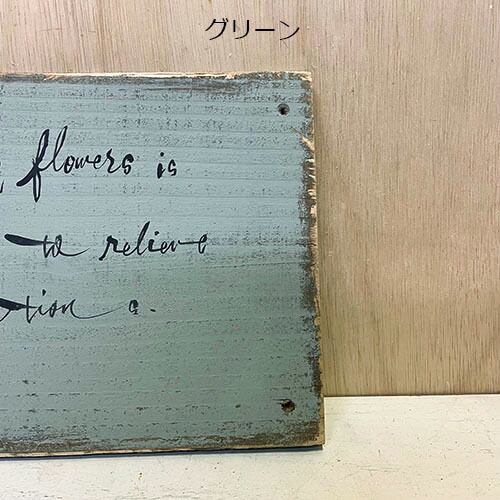 グリーン
flowers is
to relieve
tion a.